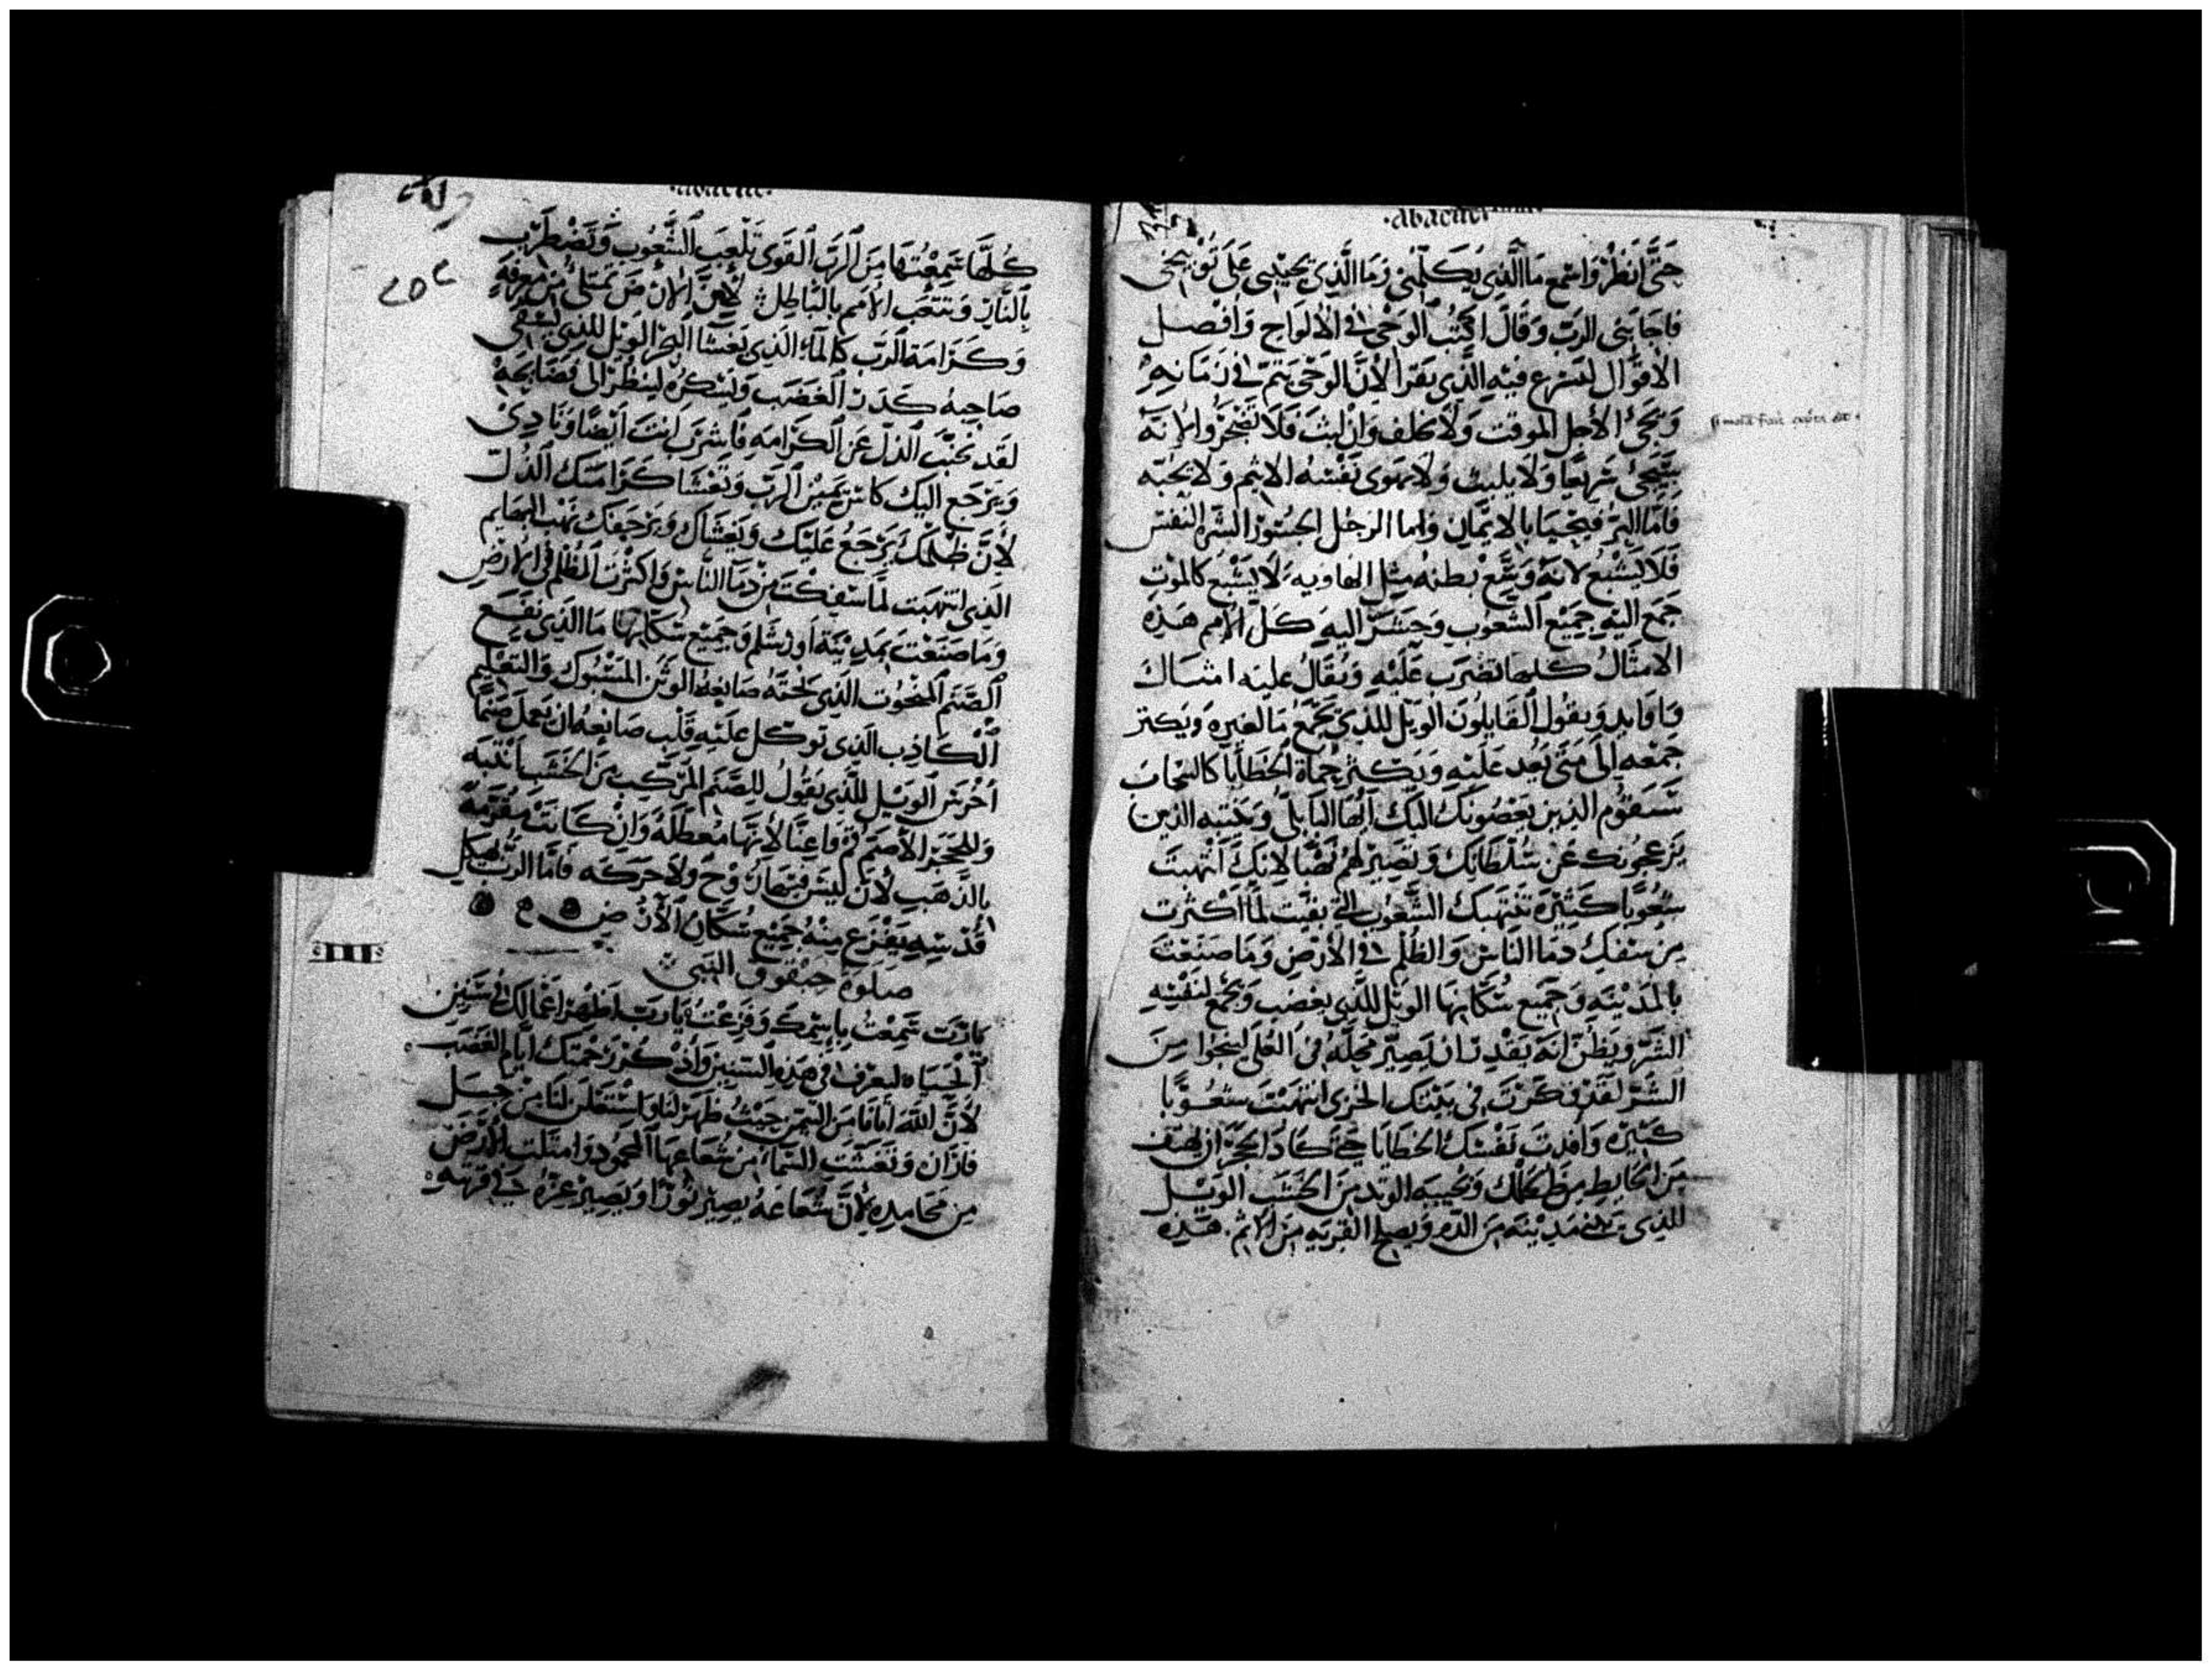 abacuc
حَتَّى انظُرْ وَاسْمَع مَا الَّذِي يُكَلِّمُنِي وَمَا الَّذِي يُجِيبُنِي عَلَى تَوْبِيخِي
فَاجَابَنِي الرَبّ وَقَالَ اكْتُبْ الوَحْيَ فِي الأَلوَاح وَافْصل
الأَقْوَال لِيَسْرِع فِيْهِ الَّذِي يَقْرَأُ لأَنَّ الوَحْيَ يَتِمّ فِي زَمَانِهِ
وَيَجِيُ الأَجل المُوَقَت وَلَا يخلف وَان لبثَ فَلَا تَضْجَرُوا لأنَّهُ
سَيَجِيُ سَرِيْعًا وَلَا يلبث وَلَا تهوَى نَفْسُهُ الاثم وَلا يحبّه
فَامَّا البِرّ فَيَحْيَا بالايْمَان وَاما الرَجُل الجسُوْر الشره النَفْس
فَلَا يَشْبَع لانَهُ وَسَّعَ بَطنهُ مِثل الهَاوِيه لَا يَشْبَع كالمَوْتِ
جَمَع اليْهِ جَمِيْع الشُعُوب وَحَشَرَ اليهِ كُلَّ الأُمَم هَذِهِ
الامْثَالُ كلّهَا تضْرَب عَلَيْهِ وَيُقَالُ عليه امْسَاك
وَاوَابِد وَيقُول القَايلُونَ الوَيْل لِلذِي يَجْمَعُ مَا لغَيرِهِ وَيَكثر
جَمْعَه الَى مَتَى بَعُد عَلَيْهِ وَيَكْثر حمَاة الخَطَايَا كالسَحَاب
سَيَقُوْم الذِين يَعَضُونَكَ اليْكَ أيُّهَا البَابِلِي وَيَنتبه الذِين
يَزعجُونك عَنْ سُلْطَانِكَ وَتصِيْر لَهُمْ نَهْبًا لانكَ أَنهبتَ
شُعُوبًا كَثِيْرَة تَنتَهبك الشُّعُوب الَّتِي بَقِيَت لمَّا اكْثَرت
مِن سَفك دمَا النَاسْ وَالظُلْم فِي الأَرْض وَمَا صَنَعْتَ
بِالمَدْيْنَه وَجَمِيع سُكَّانِهَا الوَيْل لِلَّذِي يغصب وَيَجْمَع لنَفْسِهِ
الشَرّ وَيَظُنّ انَهُ يَقْدِر ان يُصَيِّر مَحلّهُ فِي العُلَى لينْجُوا مِنَ
الشَرّ لَقَدْ فَكَّرْتَ فِي بَيْتكَ الخِزى انتَهَبْتَ شُعُوْبًا
كَثِيرَه وَافدتَ نَفْسَكَ الخَطَايَا حَتَّى كَادَ الحَجَرُ ان يَهتف
مِنَ الحَايط مِنْ ظلمكَ وَتُجِيبَهُ الوَتد مِنَ الخَشَب الوَيْل
لِلذِي يَبْنِي مَدِيْنَه مِنَ الدَّم وَيصلح القَرْيَه مِنَ الاثم هَذِهِ
abacuc
كُلّهَا سَمِعْتهَا مِنَ الرَّبّ القَوِي تَلْعَب الشُّعُوب وَتَضْطَرِب
بِالنَّار وَتتْعَب الأُمَم بالبَاطِل لأنَّ الأرْض تَمتَلى مِنْ مَعْرِفَة
وَكَرَامَة الرَّب كالمَاء الذِي يَغشَا البَحْر الوَيْل للذِي يَسْقى
صَاحِبهُ كَدَر الغَضَب وَيُسْكِرهُ ليَنْظُر الَى فَضَايحَهِ
لَقَد نَحيْتَ الذّل عَن الكَرَامَهِ فَاشْرَب انْتَ أَيْضًا وَتَادى
وَيَرْجَع اليْكَ كَاس يَمِيْن الرَّب وَيَغْشَا كَرَامَتكَ الذُّل
لأَنَّ ظُلْمَك يَرْجَعُ عَلَيْك وَيَغشَاك وَيَرْجعَك نَهْب البهَايم
الَّذِي انتهَبت لمَّا سَفِكْت مِنْ دمَا النَّاس وَاكْثَرت الظُلْم فِي الأَرْض
وَمَا صَنَعْت بمَدِيْنَة اورَشَلِم وَجَمِيْع سُكَّانِهَا مَا الذِي نَفَع
الصَّنَم المَنْحُوت الذِي نَحَتهُ صَانِعهُ الوَثن المَسْبُوك وَالتعْلِيْم
الْكَاذِب الَذِي تَوَكّل عَلَيْهِ قَلْب صَانِعهُ ان يَعْمل صَنَمًا
أخْرَس الوَيْل لِلَّذِي يَقُولُ للِصَّنَم المُرَكَّب مِنَ الخَشَب انتَبَه
وَلِلحَجَر الأَصَم قُمْ فَاعِنَّا لأَنَّهَا مُعَطَّلَهُ وَانْ كَانتْ مُقرنَهُ
بالذَّهَب لأَنَ لَيسَ فِيْهَا رُوْح وَلَا حَرَكَه فَامَّا الرَّبّ في هيكل
قُدْسِهِ يَفْزَع مِنْهُ جَمِيْع سُكَّان الأَرْض
صَلوة حبْقُوق النَبِي
يَا رَبّ سَمِعْتُ بِاسْمك وَفَزِعْتُ يَا رَب اظْهِر اعْمَالكَ في سنِيْن
الْحَيَاه ليعرف فِي هَذِهِ السّنِيْن وَاذْكر رَحْمَتكَ ايَّام الغَضَب
لأَنَّ اللَّه أتَانَا مِنَ التيْمن حَيْثُ ظَهَرَ لنَا وَاسْتَعلن لَنَا مِنْ جَبل
فَارَان وَتغَشَّت السَّمَاء مِن شُعَاعِهَا المَحمُود وَامتَلَت الأَرْض
مِن مَحَامِدِه لأنَّ شُعَاعهُ يصِيْر نُورًا وَيَصِيْر عزّه في قَريَتهِ